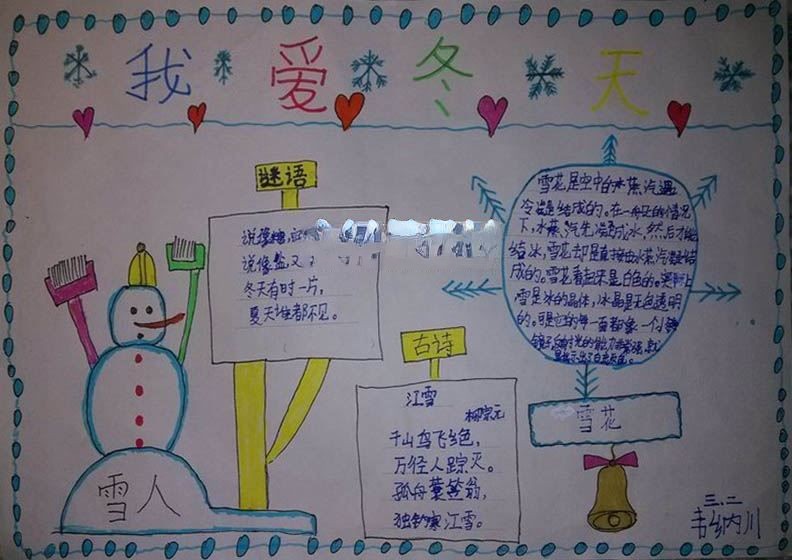 我爱冬天
谜语
说像糖,
说像盐,又
冬天有时一片,
夏天谁都不见。
雪花是空中的水蒸汽遇
冷凝结成的。在一般的情况
下,水蒸汽先凝结成水,然后才能
结冰,雪花却是直接由水蒸汽凝结
成的。雪花看起来是白色的。实际上
雪是冰的晶体,冰晶是无色透明
的。可是它的每一面都像一个小镜
古诗
江雪
柳宗元
千山鸟飞绝,
万径人踪灭。
孤舟蓑笠翁,
独钓寒江雪。
雪花
雪人
三.二